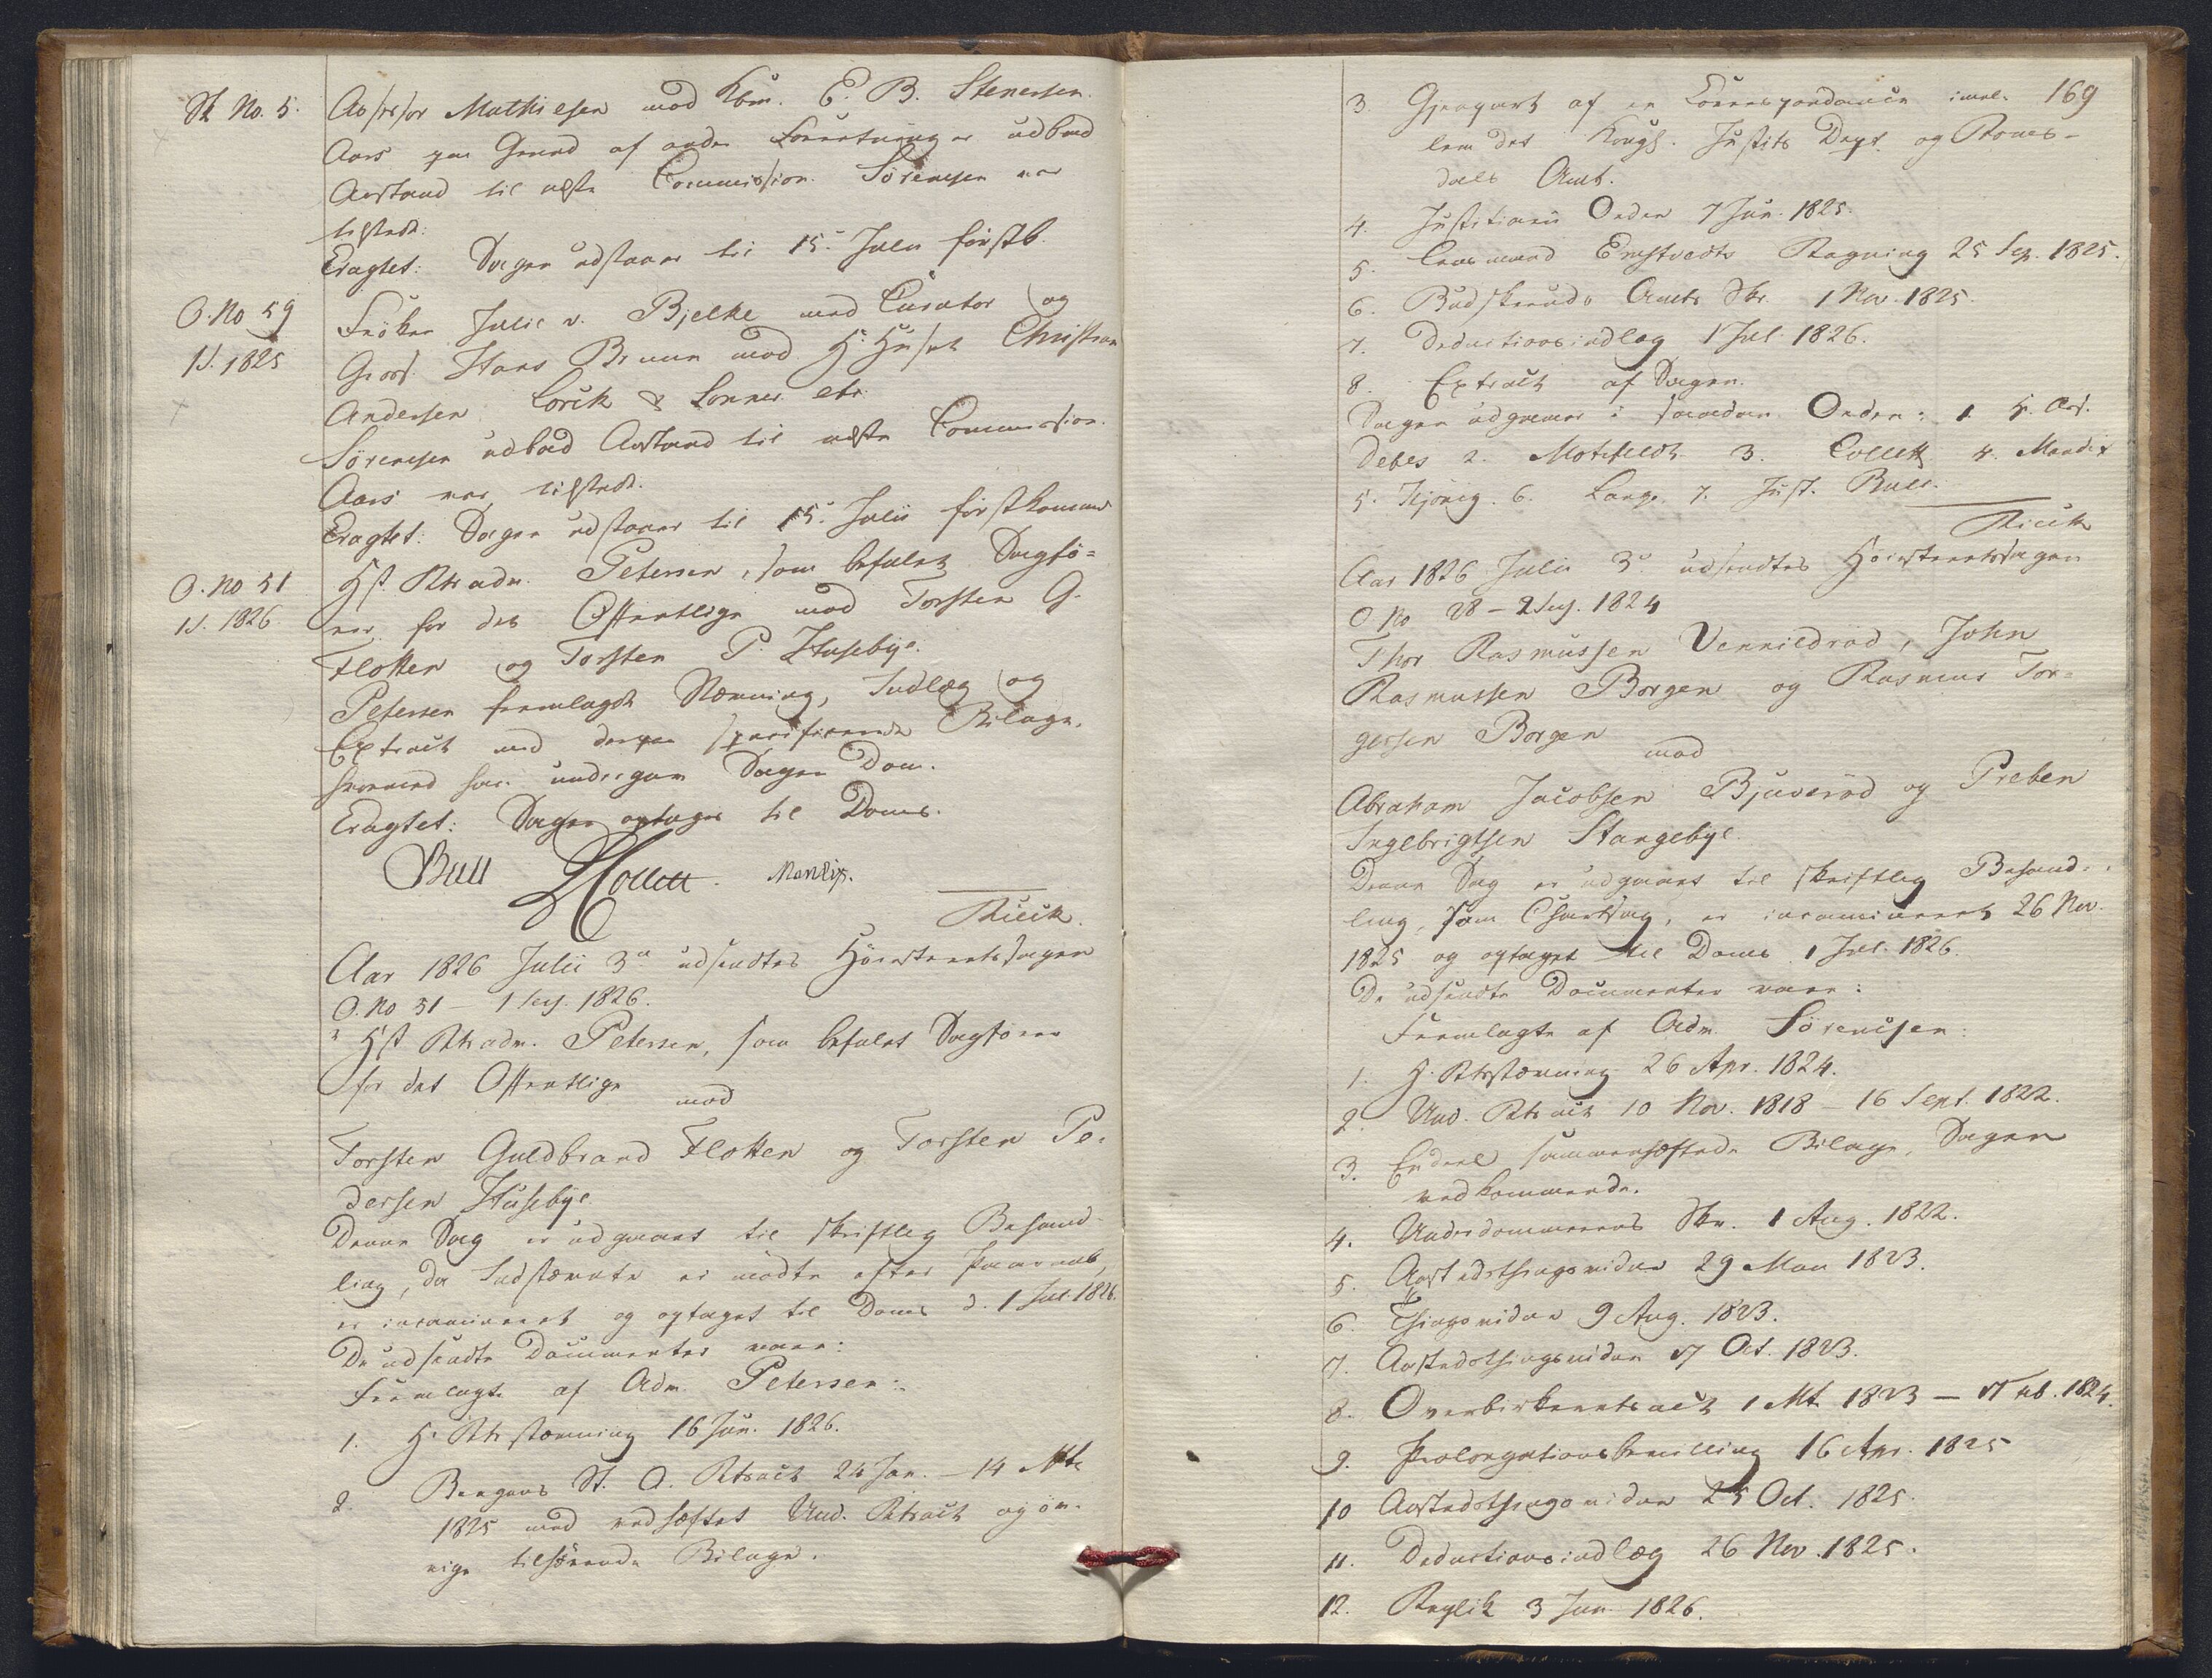 St No. 5.
Assessor Mathiesen mod Kbm. E. B. Stenersen.
Aars paa Grund af andre Forretninger udbad
Anstand til næste Commission. Sörensen var
tilstede.
Eragtet: Sagen udstaaer til 15de Julii førstk.
O. No 59
1 S. 1825
Fröken Julie v. Bjelke med Curator og
Gross. Hans Bruun mod H: Huset Christian
Andersen Lorck & Sönner etc.
Sörensen udbad Anstand til næste Commission.
Aars var tilstede.
Eragtet: Sagen udstaaer til 15de Julii førstkommende
O. No 51
1 S. 1826.
Hst Rts adv. Petersen, som befalet Sagfö-
rer for det Offentlige mod Torsten G.
Flotten og Torsten P. Husebye.
Petersen fremlagde Stævning, Indlæg og
Extract med deri specificerede Bilage,
hvormed han undergav Sagen Dom.
Eragtet: Sagen optages til Doms.
Bull Collett. Mandix.
Rieck.
Aar 1826 Julii 3de udsendtes Höiesteretssagen
O. No 51 – 1 Ses. 1826.
Hst Rts adv. Petersen, som befalet Sagförer
for det Offentlige
mod
Torsten Guldbrand Flotten og Torsten Pe-
dersen Husebye
Denne Sag er udgaaet til skriftlig Behand-
ling, da Indstævnte ei mödte efter Paaraab,
er incamineret og optaget til Doms d. 1 Jul. 1826.
De udsendte Documenter vare:
Fremlagte af Adv. Petersen:
1. H. Rts stævning 16 Jun. 1826.
2. Bergens St. O. Rtsact 24 Jan. – 14 Mts
1825 med vedhæftet Und. Rtsact og öv-
rige tilhörende Bilage.
169
3. Gjenpart af en Correspondance imel-
lem det Kongl. Justits Dept. og Roms-
dals Amt.
4. Justitiarii Orden 7 Jun. 1825.
5. Lensmand Regning 25 Sep. 1825.
6. Buskeruds Amts Skr. 1 Nov. 1825.
7. Deductionsindlæg 1 Jul. 1826.
8. Extract af Sagen.
Sagen udgaaer i saadan Orden: 1 H. Ass.
Debes 2. Motzfeldt 3. Collett 4. Mandix
5. 6. Lange. 7. Just. Bull.
Rieck
Aar 1826 Julii 3de udsendtes Höiesteretssagen
O No 28 – 2 Ses. 1824
Thor Rasmussen Venneldröd, John
Rasmussen Borgen og Rasmus Tor-
gersen Borgen
mod
Abraham Jacobsen Bjuveröd og Preben
Ingebrigtsen Stangebye.
Denne Sag er udgaaet til skriftlig Behand-
ling, som er incamineret 26 Nov.
1825 og optaget til Doms 1 Jul. 1826.
De udsendte Documenter vare:
Fremlagte af Adv. Sörensen:
1. H. Rtsstævning 26 Apr. 1824.
2. Und. Rts act 10 Nov. 1818 – 16 Sept. 1822.
3. Endeel sammenhæftede Bilage, Sagen
vedkommende.
4. Underdommerens Skr. 1 Aug. 1822.
5. Aastedsthingsvidne 29 Mai 1823.
6. Thingsvidne 9 Aug. 1823.
7. Aastedsthingsvidne 7 Oct. 1823.
8. Overbirkeretsact 1 Mt. 1823 – 7 Feb. 1824.
9. Prolongationsbevilling 16 Apr. 1825
10 Aastedsthingsvidne 25 Oct. 1825.
11. Deductionsindlæg 26 Nov. 1825.
12. Replik 3 Jun. 1826.